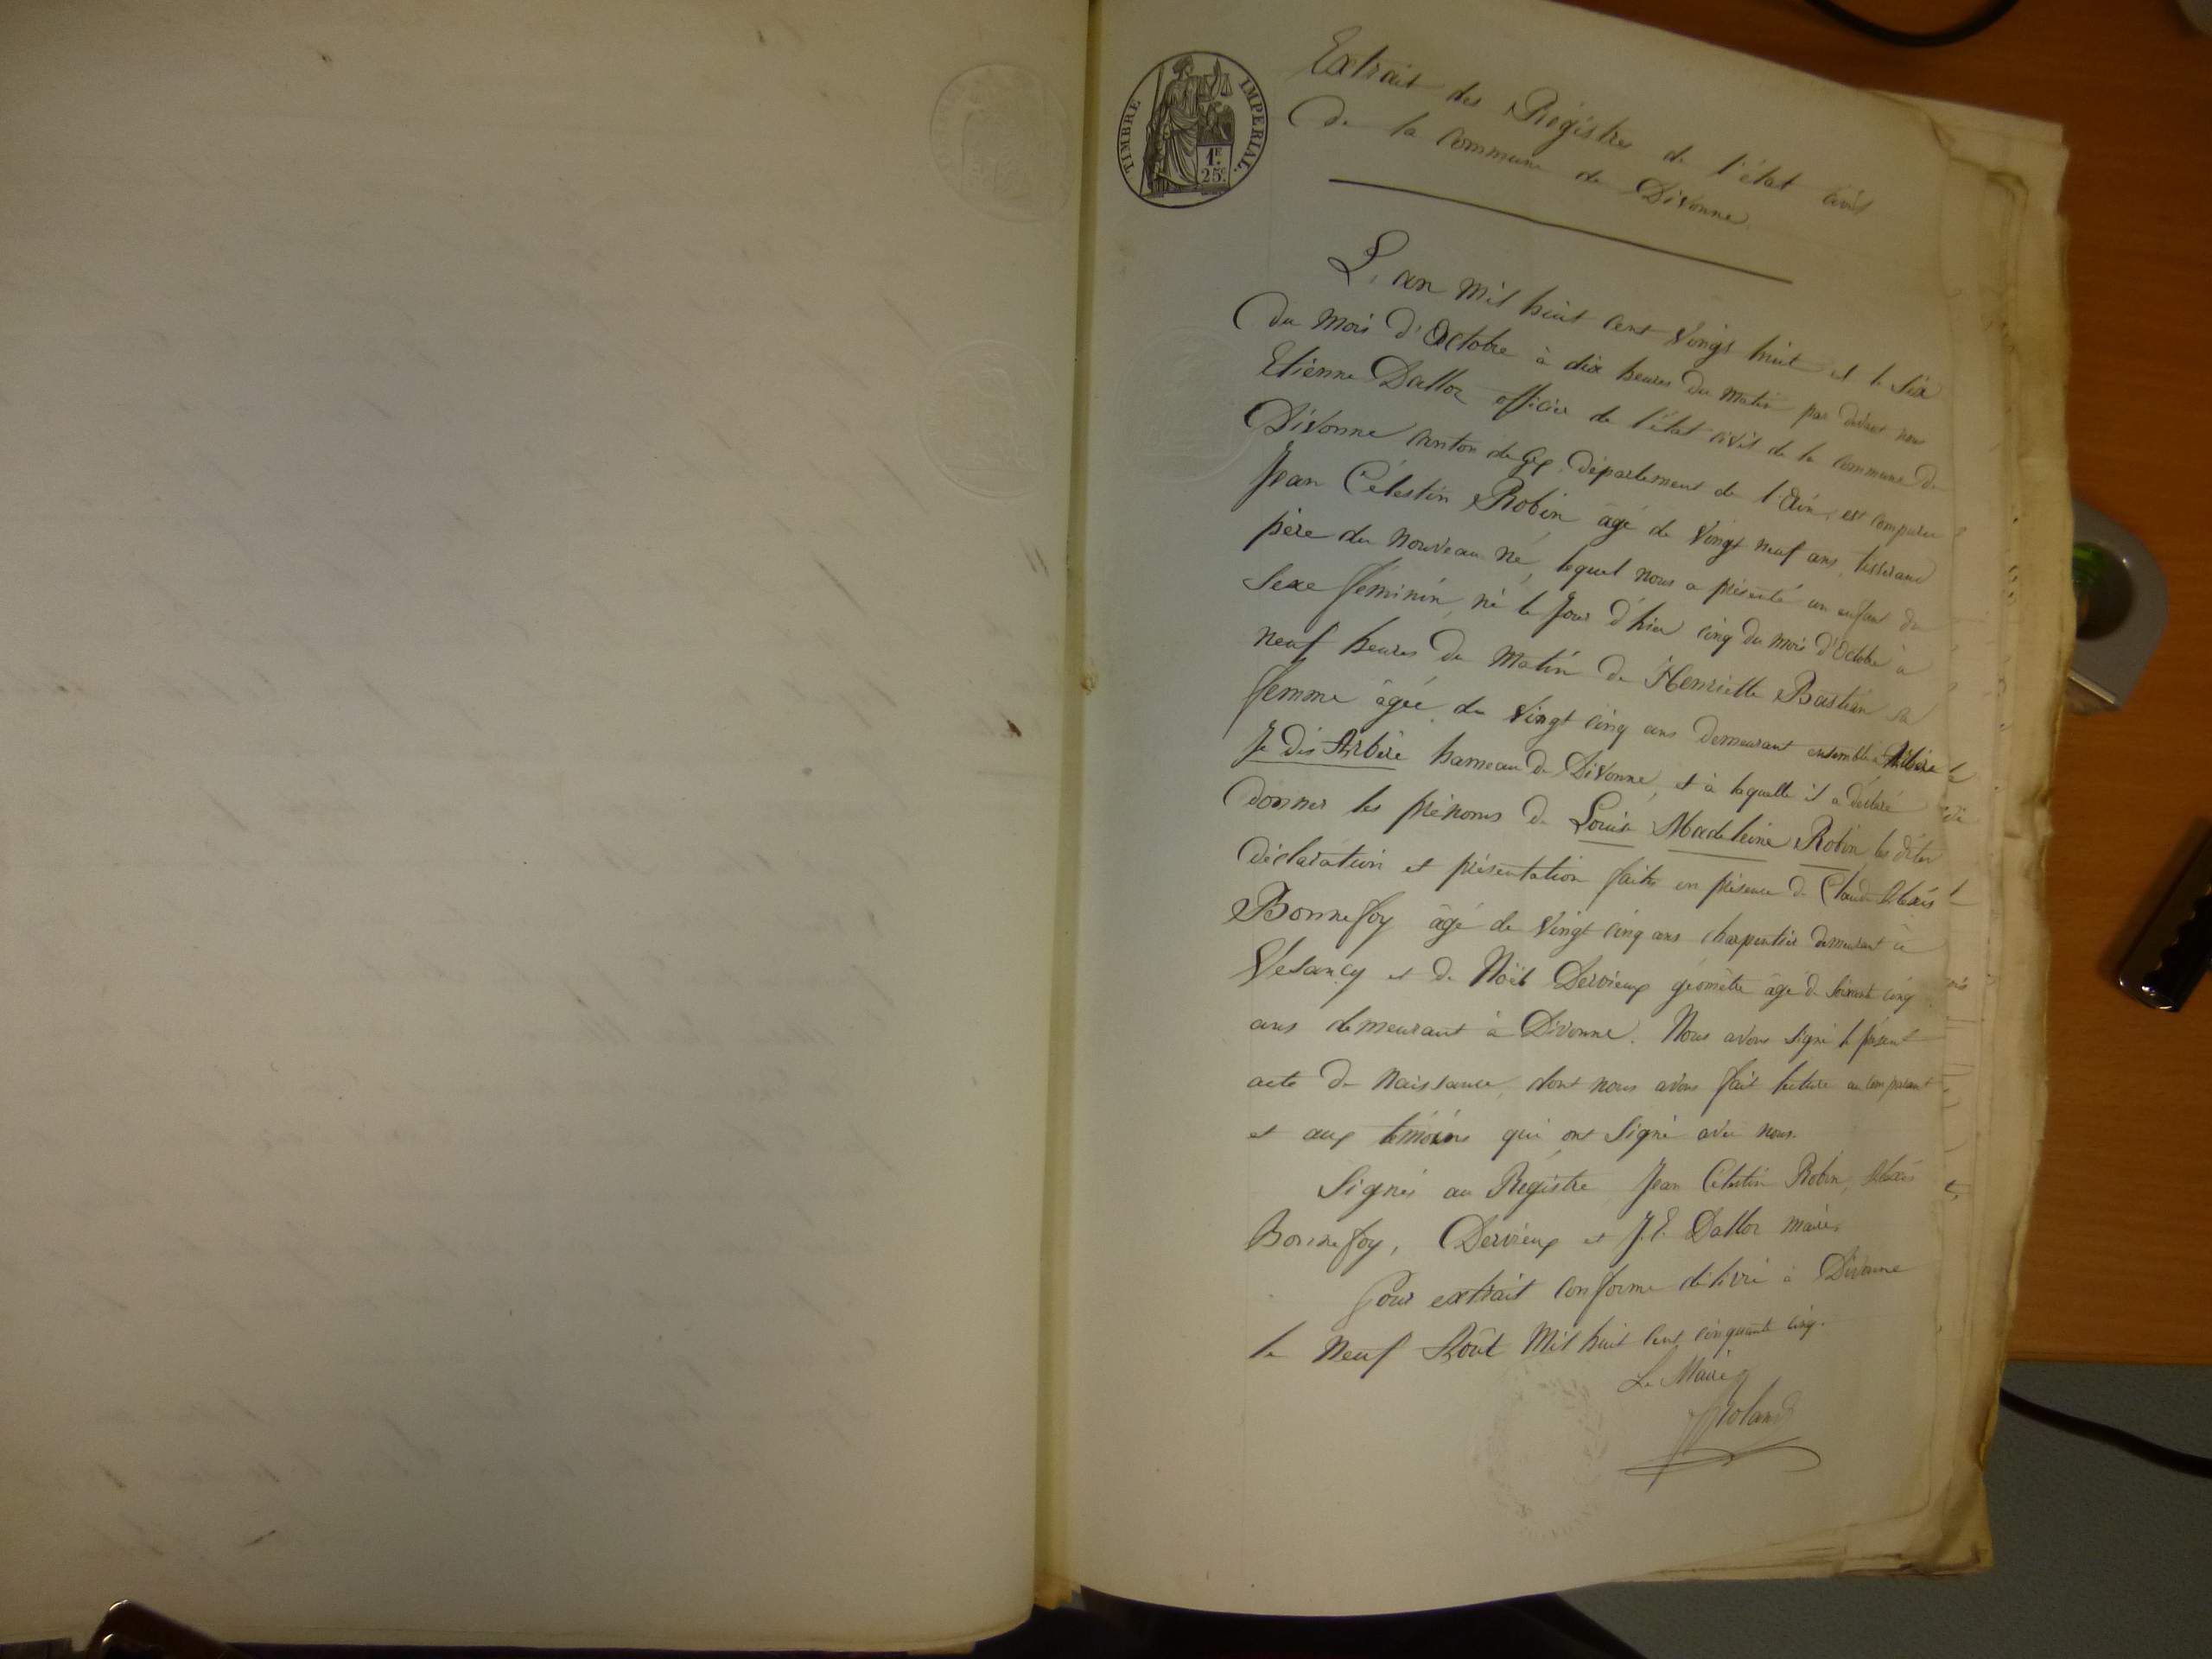 TIMBRE IMPERIAL.
1F.
25c.
Extrait des Régistres de l'état civil
De la Commune de Divonne
L'an mil huit cent Vingt huit et le Six
du mois d'Octobre à dix heures du matin par devant nous
Etienne Dallor officier de l'état civil de la commune de
Divonne canton de Gex, Département de l'Ain, est comparu
Jean Célestin Robin âgé de Vingt neuf ans, tisserand
père du nouveau né, lequel nous a présenté un enfant du
Sexe féminin, né le Jour d'hier cinq du mois d'Octobre à
neuf heures du Matin de Henriette Bastian sa
femme âgée de Vingt cinq ans demeurant ensemble à Arbère
Je dis Arbère hameau de Divonne, et à laquelle il a déclaré
donner les prénoms de Louise Madeleine Robin, les dites
déclaration et présentation faites en présence de Claude Alexis
Bonnefoy âgé de Vingt cinq ans charpentier demeurant à
Vesancy et de Noël Dervieux géomètre âgé de soixante cinq
ans demeurant à Divonne. Nous avons signé le présent
acte de Naissance, dont nous avons fait lecture au comparant
et aux témoins qui ont Signé avec nous.
Signés au Régistre Jean Célestin Robin, Alexis
Bonnefoy, Dervieux et J. E. Dallor maire.
Pour extrait conforme délivré à Divonne
le Neuf Août Mil huit cent cinquante cinq.
Le Maire